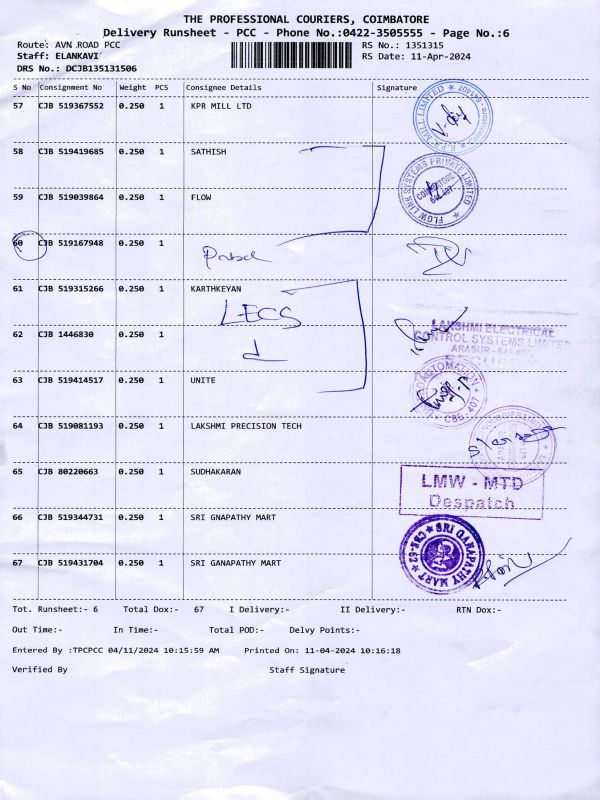 THE PROFESSIONAL COURIERS, COIMBATORE
Delivery Runsheet - PCC - Phone No.:0422-3505555 - Page No.:6
Route: AVN ROAD PCC RS No.: 1351315
Staff: ELANKAVI RS Date: 11-Apr-2024
DRS No.: DCJB135131506
S No Consignment No Weight PCS Consignee Details Signature
57 CJB 519367552 0.250 1 KPR MILL LTD
K.P.R. MILL LIMITED
58 CJB 519419685 0.250 1 SATHISH
59 CJB 519039864 0.250 1 FLOW
FLOW LINK SYSTEMS PRIVATE LIMITED
60 CJB 519167948 0.250 1
61 CJB 519315266 0.250 1 KARTHKEYAN
LECS
62 CJB 1446830 0.250 1
LAKSHMI ELECTRICAL
CONTROL SYSTEMS LIMITED
ARASUR
63 CJB 519414517 0.250 1 UNITE
CBE-407
64 CJB 519081193 0.250 1 LAKSHMI PRECISION TECH
65 CJB 80220663 0.250 1 SUDHAKARAN
LMW - MTD
Despatch
66 CJB 519344731 0.250 1 SRI GNAPATHY MART
SRI GANAPATHY MART
CBE-62
67 CJB 519431704 0.250 1 SRI GANAPATHY MART
Tot. Runsheet:- 6 Total Dox:- 67 I Delivery:- II Delivery:- RTN Dox:-
Out Time:- In Time:- Total POD:- Delvy Points:-
Entered By :TPCPCC 04/11/2024 10:15:59 AM Printed On: 11-04-2024 10:16:18
Verified By Staff Signature